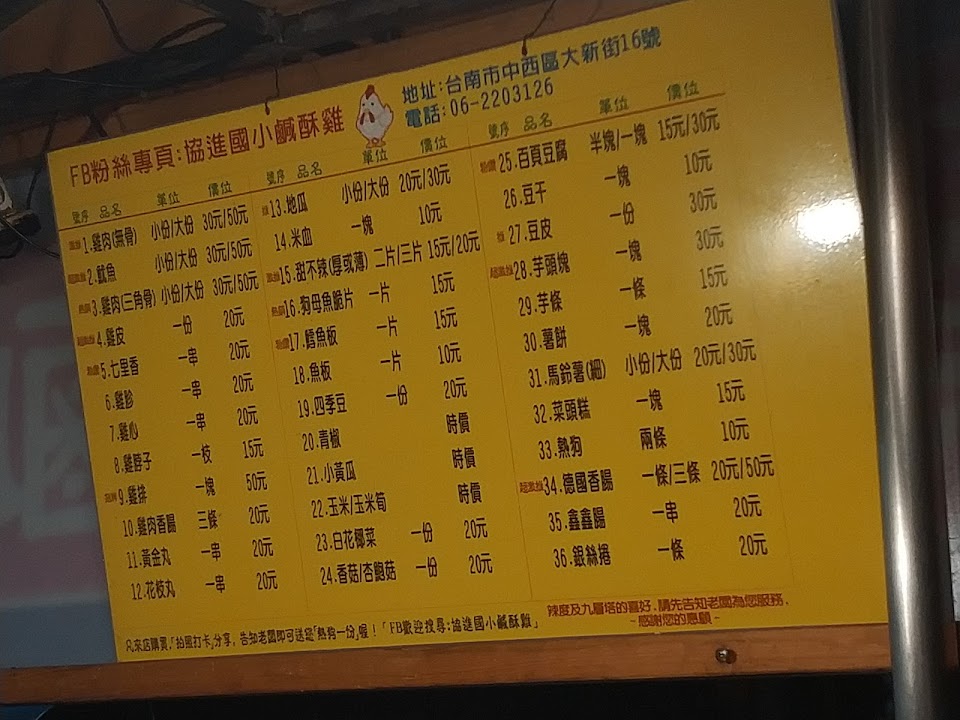 FB粉絲專頁:協進國小鹹酥雞
地址:台南市中西區大新街16號
電話:06-2203126
號序 品名 單位 價位
1.雞肉(無骨) 小份/大份 30元/50元
2.魷魚 小份/大份 30元/50元
3.雞肉(三角骨) 小份/大份 30元/50元
4.雞皮 一份 20元
5.七里香 一串 20元
6.雞胗 一串 20元
7.雞心 一串 20元
8.雞脖子 一枝 15元
9.雞排 一塊 50元
10.雞肉香腸 三條 20元
11.黃金丸 一串 20元
12.花枝丸 一串 20元
號序 品名 單位 價位
13.地瓜 小份/大份 20元/30元
14.米血 一塊 10元
15.甜不辣(厚或薄) 二片/三片 15元/20元
16.狗母魚脆片 一片 15元
17.鱈魚板 一片 15元
18.魚板 一片 10元
19.四季豆 一份 20元
20.青椒 時價
21.小黃瓜 時價
22.玉米/玉米筍 時價
23.白花椰菜 一份 20元
24.香菇/杏鮑菇 一份 20元
號序 品名 單位 價位
25.百頁豆腐 半塊/一塊 15元/30元
26.豆干 一塊 10元
27.豆皮 一份 30元
28.芋頭塊 一塊 30元
29.芋條 一條 15元
30.薯餅 一塊 20元
31.馬鈴薯(細) 小份/大份 20元/30元
32.菜頭糕 一塊 15元
33.熱狗 兩條 10元
34.德國香腸 一條/三條 20元/50元
35.鑫鑫腸 一串 20元
36.銀絲捲 一條 20元
凡來店購買,「拍照打卡」分享, 告知老闆即可送您「熱狗一份」喔!「FB歡迎搜尋:協進國小鹹酥雞」
辣度及九層塔的喜好,請先告知老闆為您服務,
- 感謝您的惠顧 -